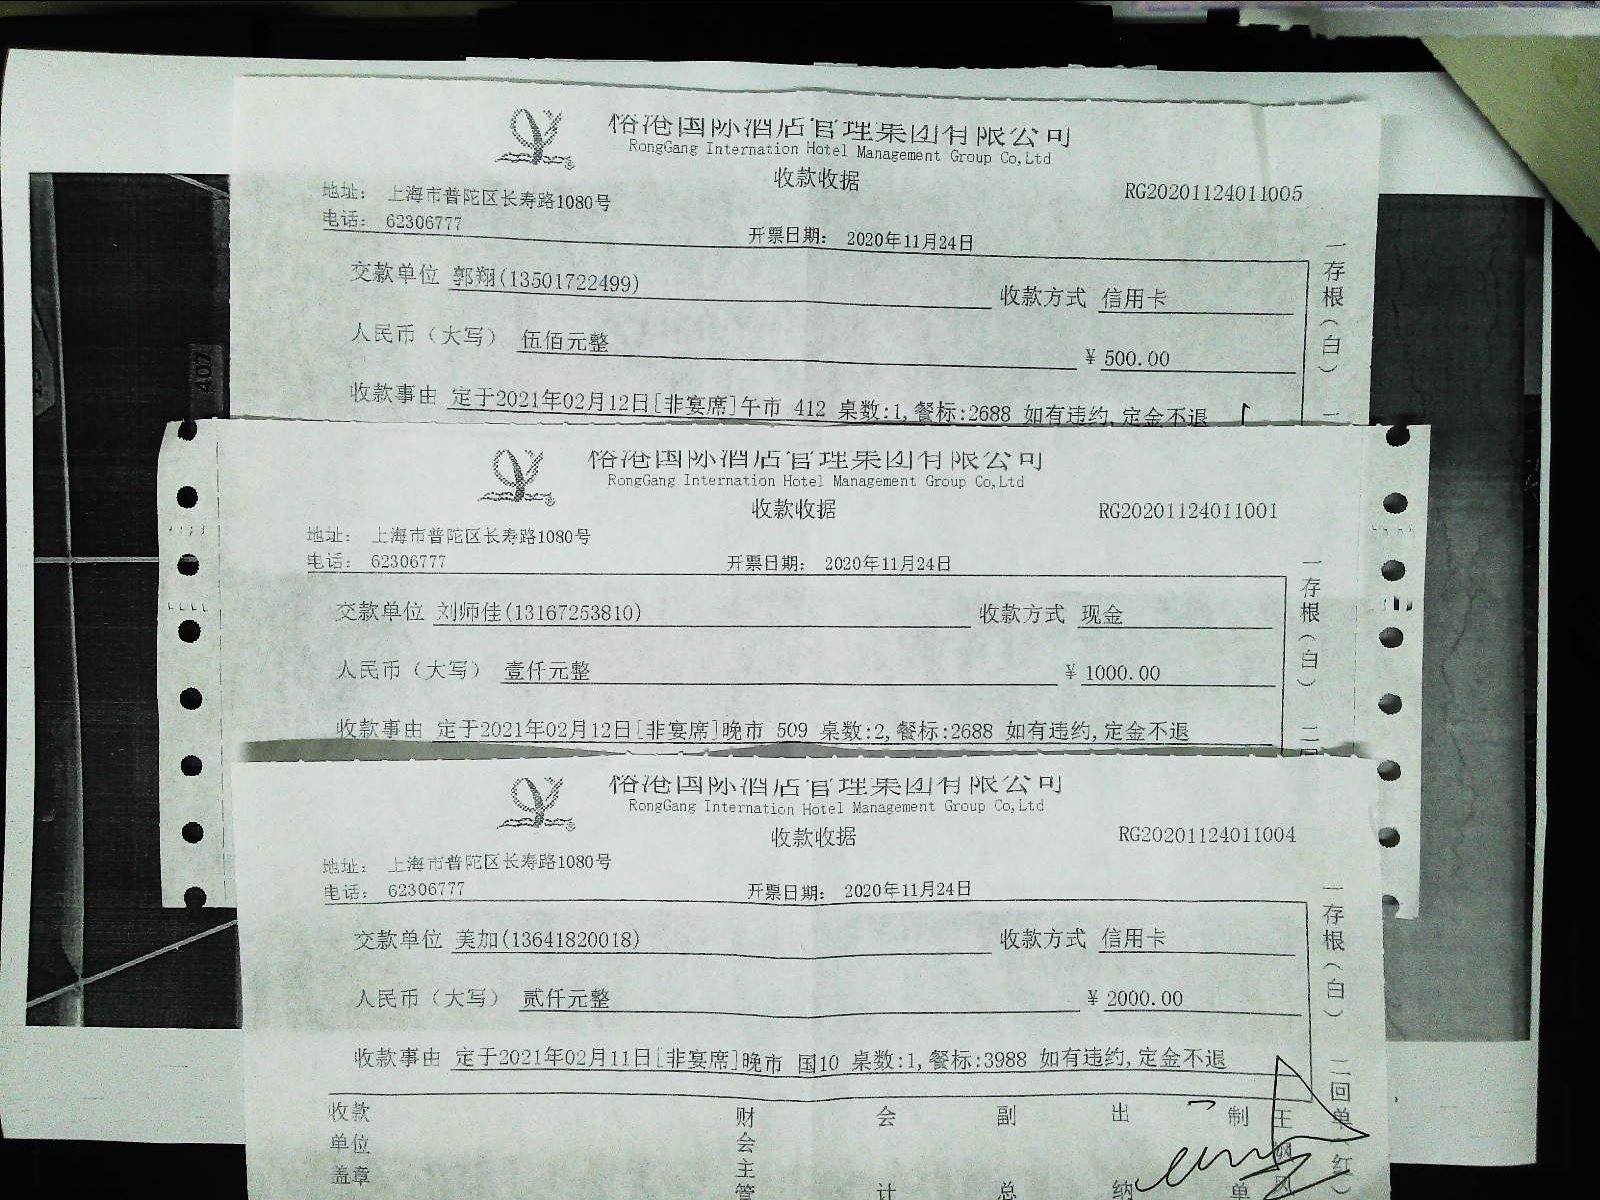 裕港国际酒店管理集团有限公司
RongGang Internation Hotel Management Group Co,Ltd
收款收据
地址： 上海市普陀区长寿路1080号
RG20201124011005
电话： 62306777
开票日期： 2020年11月24日
交款单位 郭翔(13501722499)
收款方式 信用卡
人民币（大写） 伍佰元整
¥ 500.00
收款事由 定于2021年02月12日[非宴席]午市 412 桌数:1,餐标:2688 如有违约,定金不退
一存根（白）二
407
裕港国际酒店管理集团有限公司
RongGang Internation Hotel Management Group Co,Ltd
收款收据
RG20201124011001
地址： 上海市普陀区长寿路1080号
电话： 62306777
开票日期： 2020年11月24日
交款单位 刘师佳(13167253810)
收款方式 现金
人民币（大写） 壹仟元整
¥ 1000.00
收款事由 定于2021年02月12日[非宴席]晚市 509 桌数:2,餐标:2688 如有违约,定金不退
一存根（白）二回
裕港国际酒店管理集团有限公司
RongGang Internation Hotel Management Group Co,Ltd
收款收据
RG20201124011004
地址： 上海市普陀区长寿路1080号
电话： 62306777
开票日期： 2020年11月24日
交款单位 美加(13641820018)
收款方式 信用卡
人民币（大写） 贰仟元整
¥ 2000.00
收款事由 定于2021年02月11日[非宴席]晚市 国10 桌数:1,餐标:3988 如有违约,定金不退
一存根（白）二回单（红）
收款单位盖章
财会主管
会计
副总
出纳
制单
王